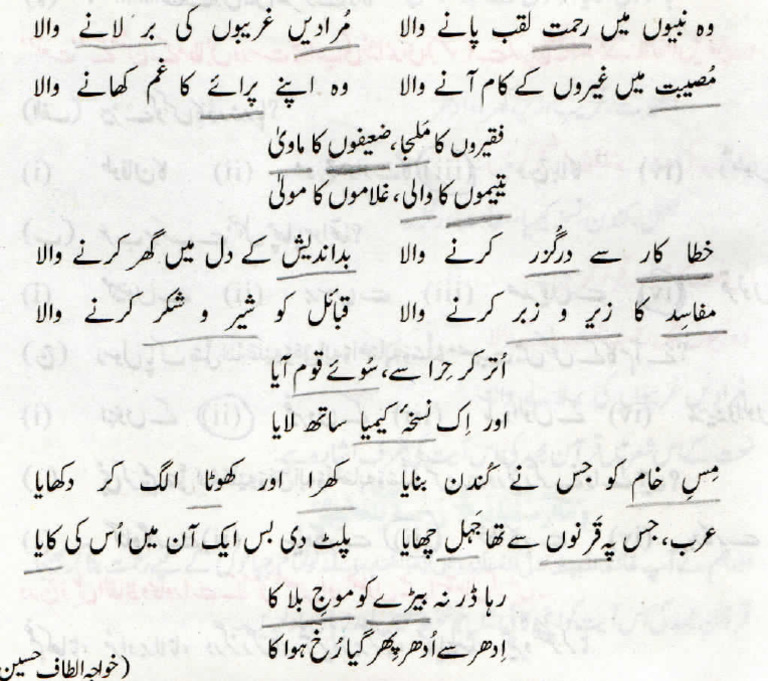 وہ نبیوں میں رحمت لقب پانے والا مُرادیں غریبوں کی بر لانے والا
مُصیبت میں غیروں کے کام آنے والا وہ اپنے پرائے کا غم کھانے والا
فقیروں کا مَلجا، ضعیفوں کا ماویٰ
یتیموں کا والی، غلاموں کا مولیٰ
خطا کار سے درگُزر کرنے والا بداندیش کے دل میں گھر کرنے والا
مفاسِد کا زیر و زبر کرنے والا قبائل کو شیر و شکر کرنے والا
اُتر کر حِرا سے، سُوئے قوم آیا
اور اِک نسخۂ کیمیا ساتھ لایا
مِسِ خام کو جس نے کُندن بنایا کھرا اور کھوٹا الگ کر دکھایا
عرب، جس پہ قَرنوں سے تھا جَہل چھایا پلٹ دی بس ایک آن میں اُس کی کایا
رہا ڈر نہ بیڑے کو موجِ بلا کا
اِدھر سے اُدھر پِھر گیا رُخ ہوا کا
(خواجہ الطاف حسین